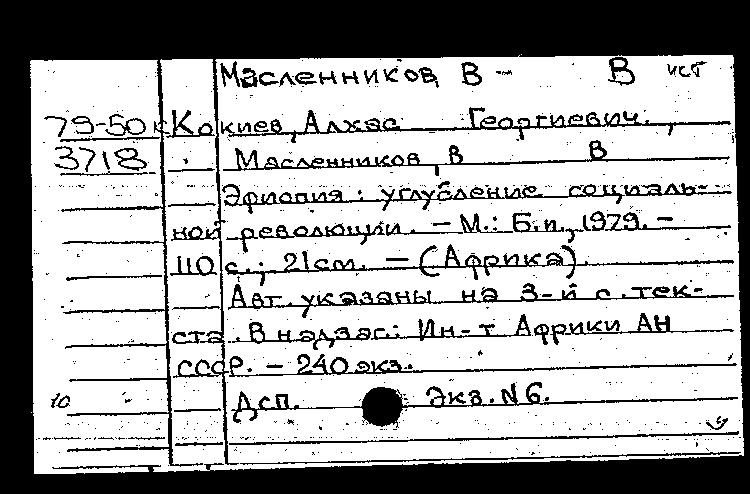 Масленников, В - В исб
79-50к Кокиев, Алхас Георгиевич.,
3718 Масленников, В В
Эфиопия: углубление социаль-
ной революции. - М.: Б.и., 1979. -
110 с.; 21 см. - (Африка).
Авт. указаны на 3-й с. тек-
ста. В надзаг.: Ин-т Африки АН
СССР. - 240 экз.
10 Дсп. Экз. N 6.